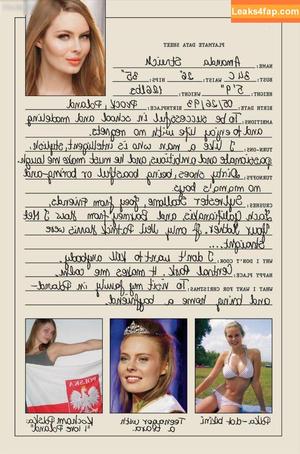 Leaks4fap.com
PLAYMATE DATA SHEET
NAME: Amanda Streich
BUST: 34 C WAIST: 26" HIPS: 35"
HEIGHT: 5'9" WEIGHT: 126lbs
BIRTH DATE: 05/26/93 BIRTHPLACE: Płock, Poland
AMBITIONS: To be successful in school and modeling
and enjoy life with no regrets.
TURN-ONS: I like a man who is intelligent, stylish,
passionate and ambitious, and he must make me laugh.
TURNOFFS: Dirty shoes, being boastful or boring—and
no mama's boys.
CRUSHES: Sylvester Stallone, Joey from Friends,
Zach Galifianakis and Barney from How I Met
Your Mother. If only Neil Patrick Harris were
straight...
WHY I DON'T COOK: I don't want to kill anybody.
HAPPY PLACE: Central Park. It makes me calm.
WHAT I WANT FOR CHRISTMAS: To visit my family in Poland—
and bring home a boyfriend.
POLSKA
Polka-dot bikini.
Teenager with
a tiara.
Kocham Polskę:
"I love Poland"